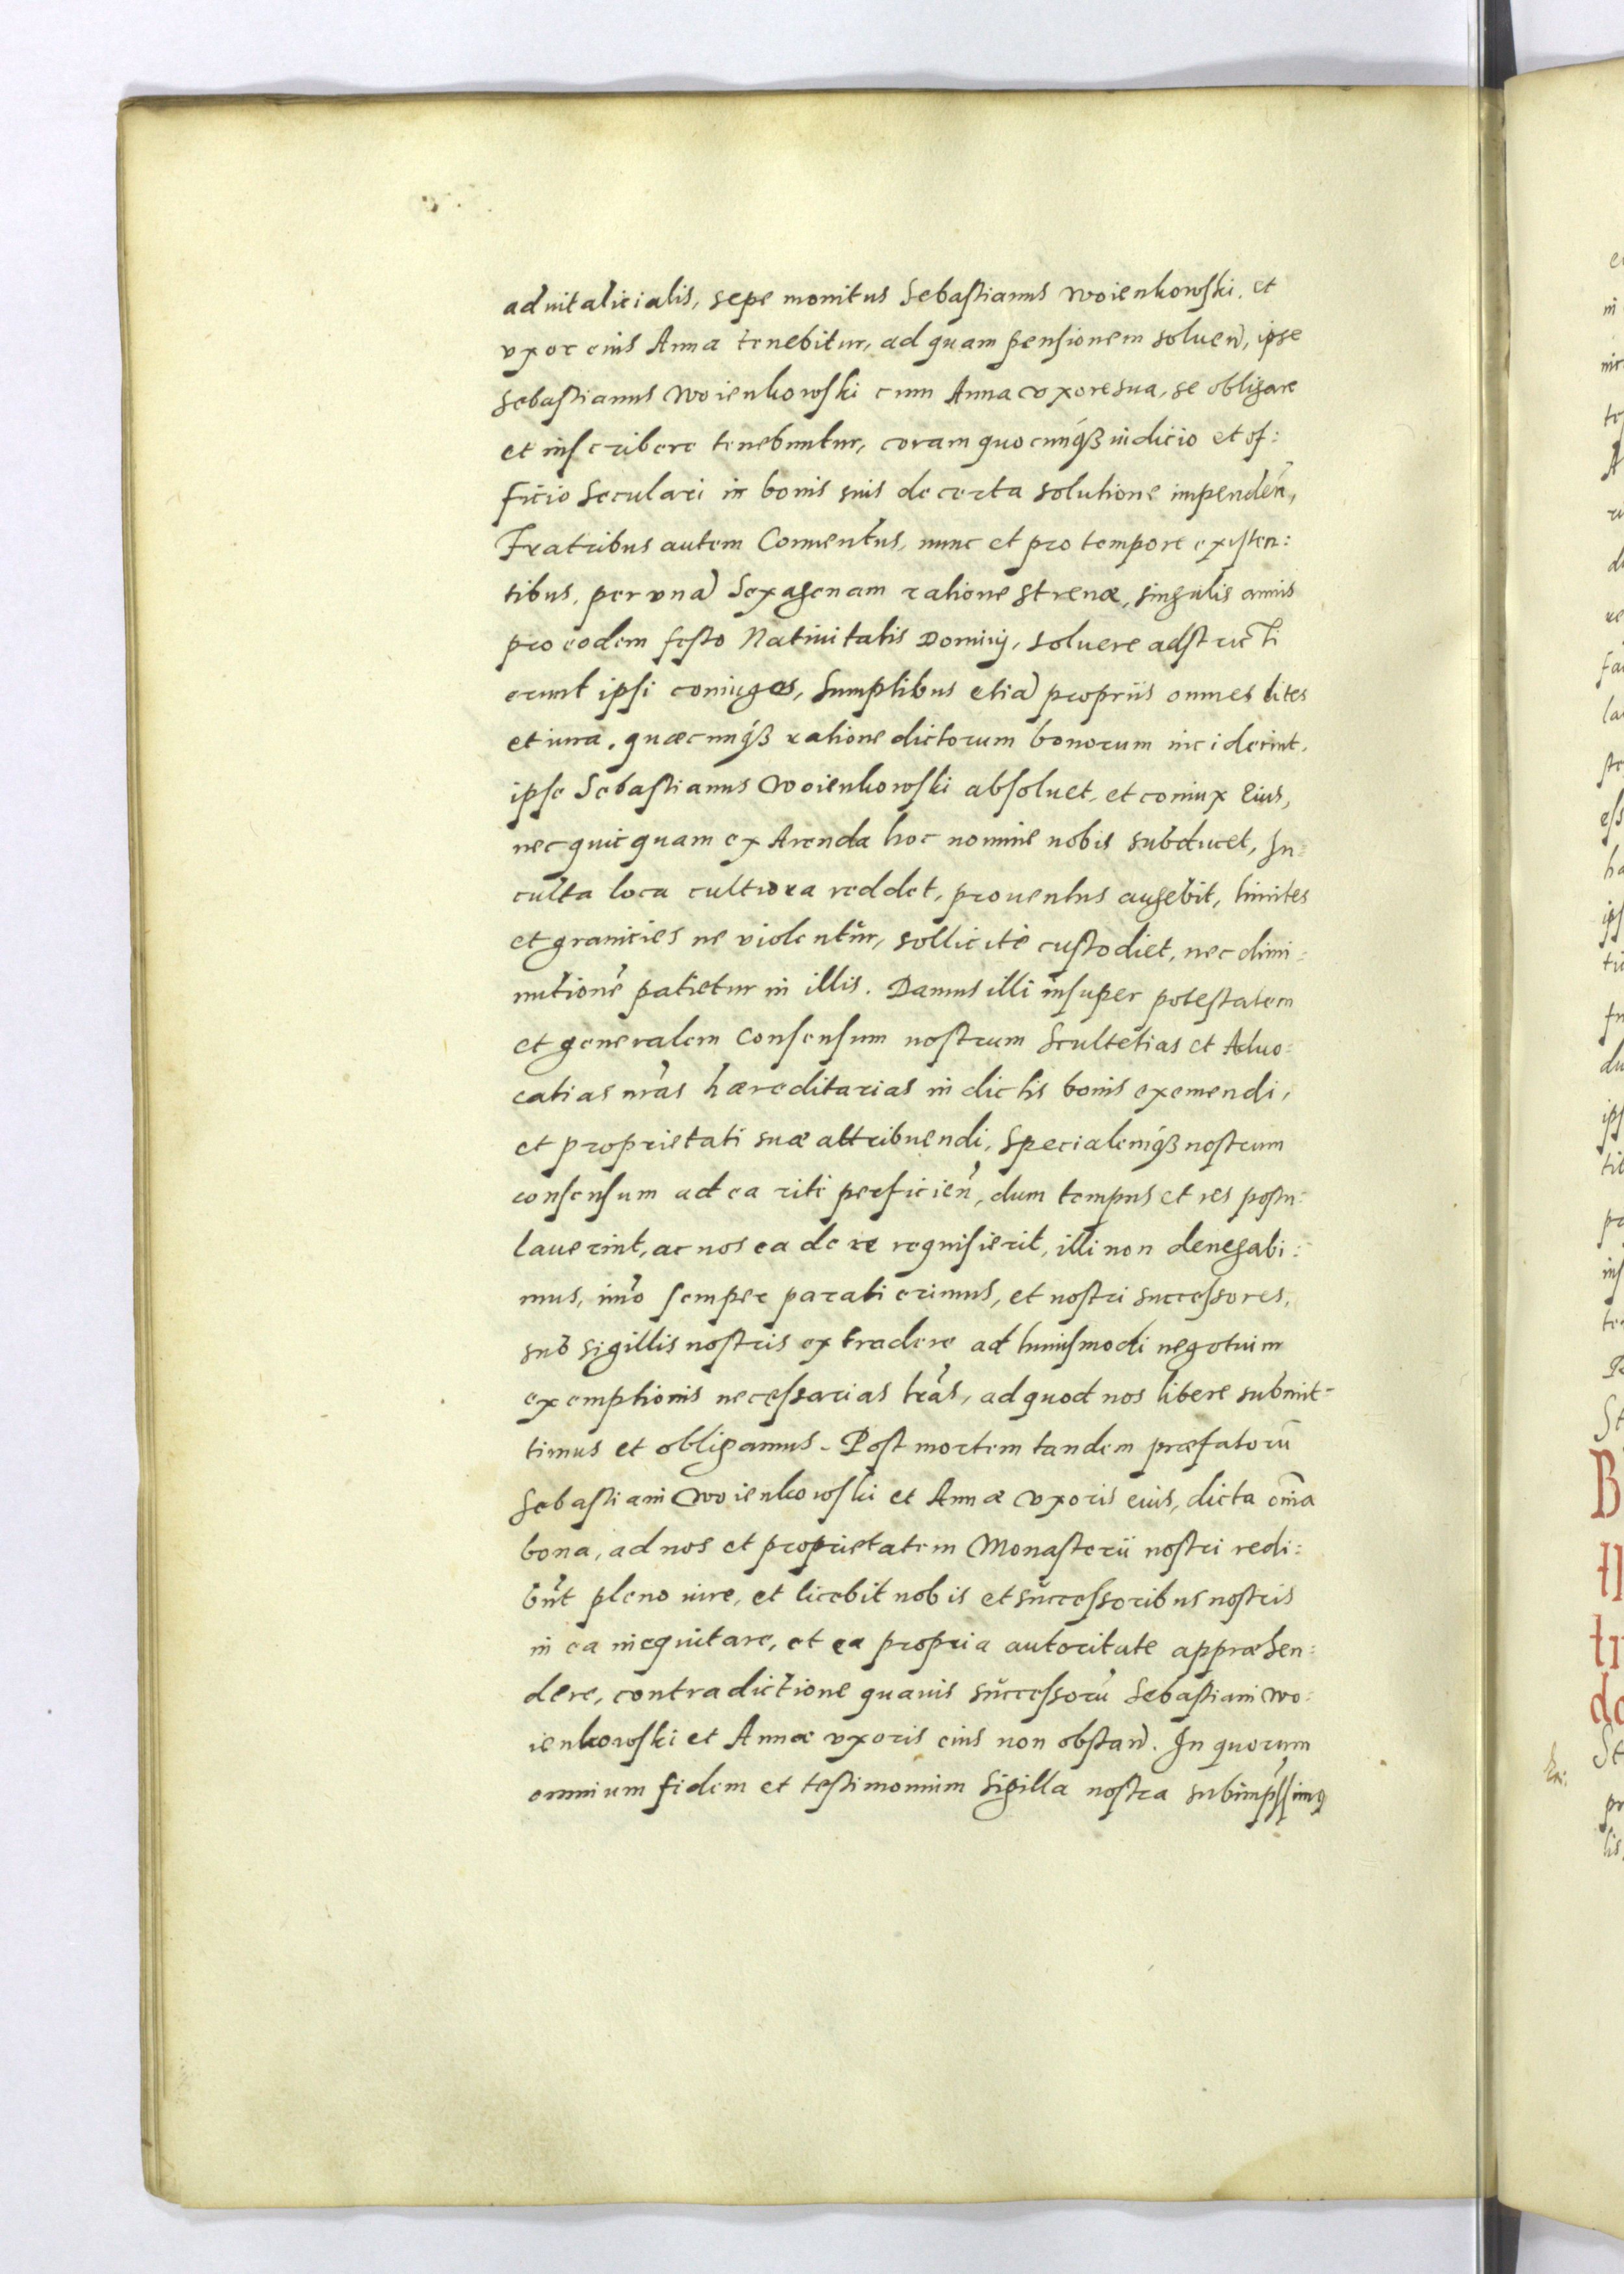 aduitalicialis, sepe monitus Sebastianus Woienkowski, et
vxor eius Anna tenebitur, ad quam pensionem soluen̄, ipse
Sebastianus Woienkowski cum Anna vxore sua, se obligare
et inscribere tenebuntur, coram quocunq́ꝫ iudicio et of:
ficio Seculari in bonis suis de certa solutione impenden̄,
Fratribus autem Conuentus, nunc et pro tempore existen:
tibus, per vnā Sexagenam ratione strenæ, singulis annis
pro eodem festo Natiuitatis Dominij, soluere adstricti
erunt ipsi coniuges, sumptibus etiā propriis omnes lites
et iura, quæcunq́ꝫ ratione dictorum bonorum inciderint,
ipse Sebastianus Woienkowski absoluet, et coniux Eius,
nec quicquam ex Arenda hoc nomine nobis subducet, In:
culta loca cultiora reddet, prouentus augebit, limites
et granicies ne violentŭr, sollicitè custodiet, nec dimi:
nutionē patietur in illis. Damus illi insuper potestatem
et generalem consensum nostrum Scultetias et Aduo:
catias nr̄as hæreditarias in dictis bonis exemendi,
et proprietati suæ attribuendi, Specialemq́ꝫ nostrum
consensum ad ea ritè perficien̄, dum tempus et res postu:
lauerint, ac nos ea de re requisierit, illi non denegabi:
mus, imò semper parati erimus, et nostri successores,
sub sigillis nostris extradere ad huiusmodi negotium
exemptionis necessarias lr̄as, ad quod nos libere submit-
timus et obligamus. Post mortem tandem præfatorū
Sebastiani Woienkowski et Annæ vxoris eius, dicta om̄ia
bona, ad nos et proprietatem Monasterii nostri redi:
bn̄t pleno iure, et licebit nobis et sŭccessoribus nostris
in ea inequitare, et ea propria autoritate appræhen:
dere, contradictione quauis sŭccessorū Sebastiani Wo:
ienkowski et Annæ vxoris eius non obstan̄. In quorum
omnium fidem et testimonium Sigilla nostra subimp̄ssimꝰ